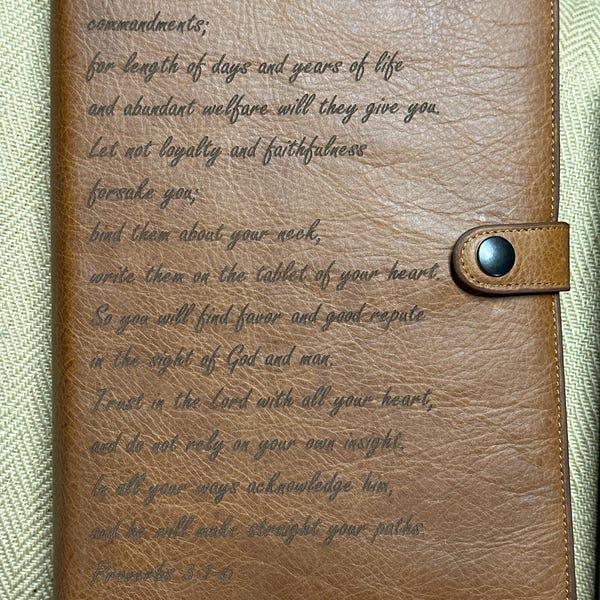 commandments;
for length of days and years of life
and abundant welfare will they give you.
Let not loyalty and faithfulness
forsake you;
bind them about your neck,
write them on the tablet of your heart.
So you will find favor and good repute
in the sight of God and man.
Trust in the Lord with all your heart,
and do not rely on your own insight.
In all your ways acknowledge him,
and he will make straight your paths
Proverbs 3:1-6